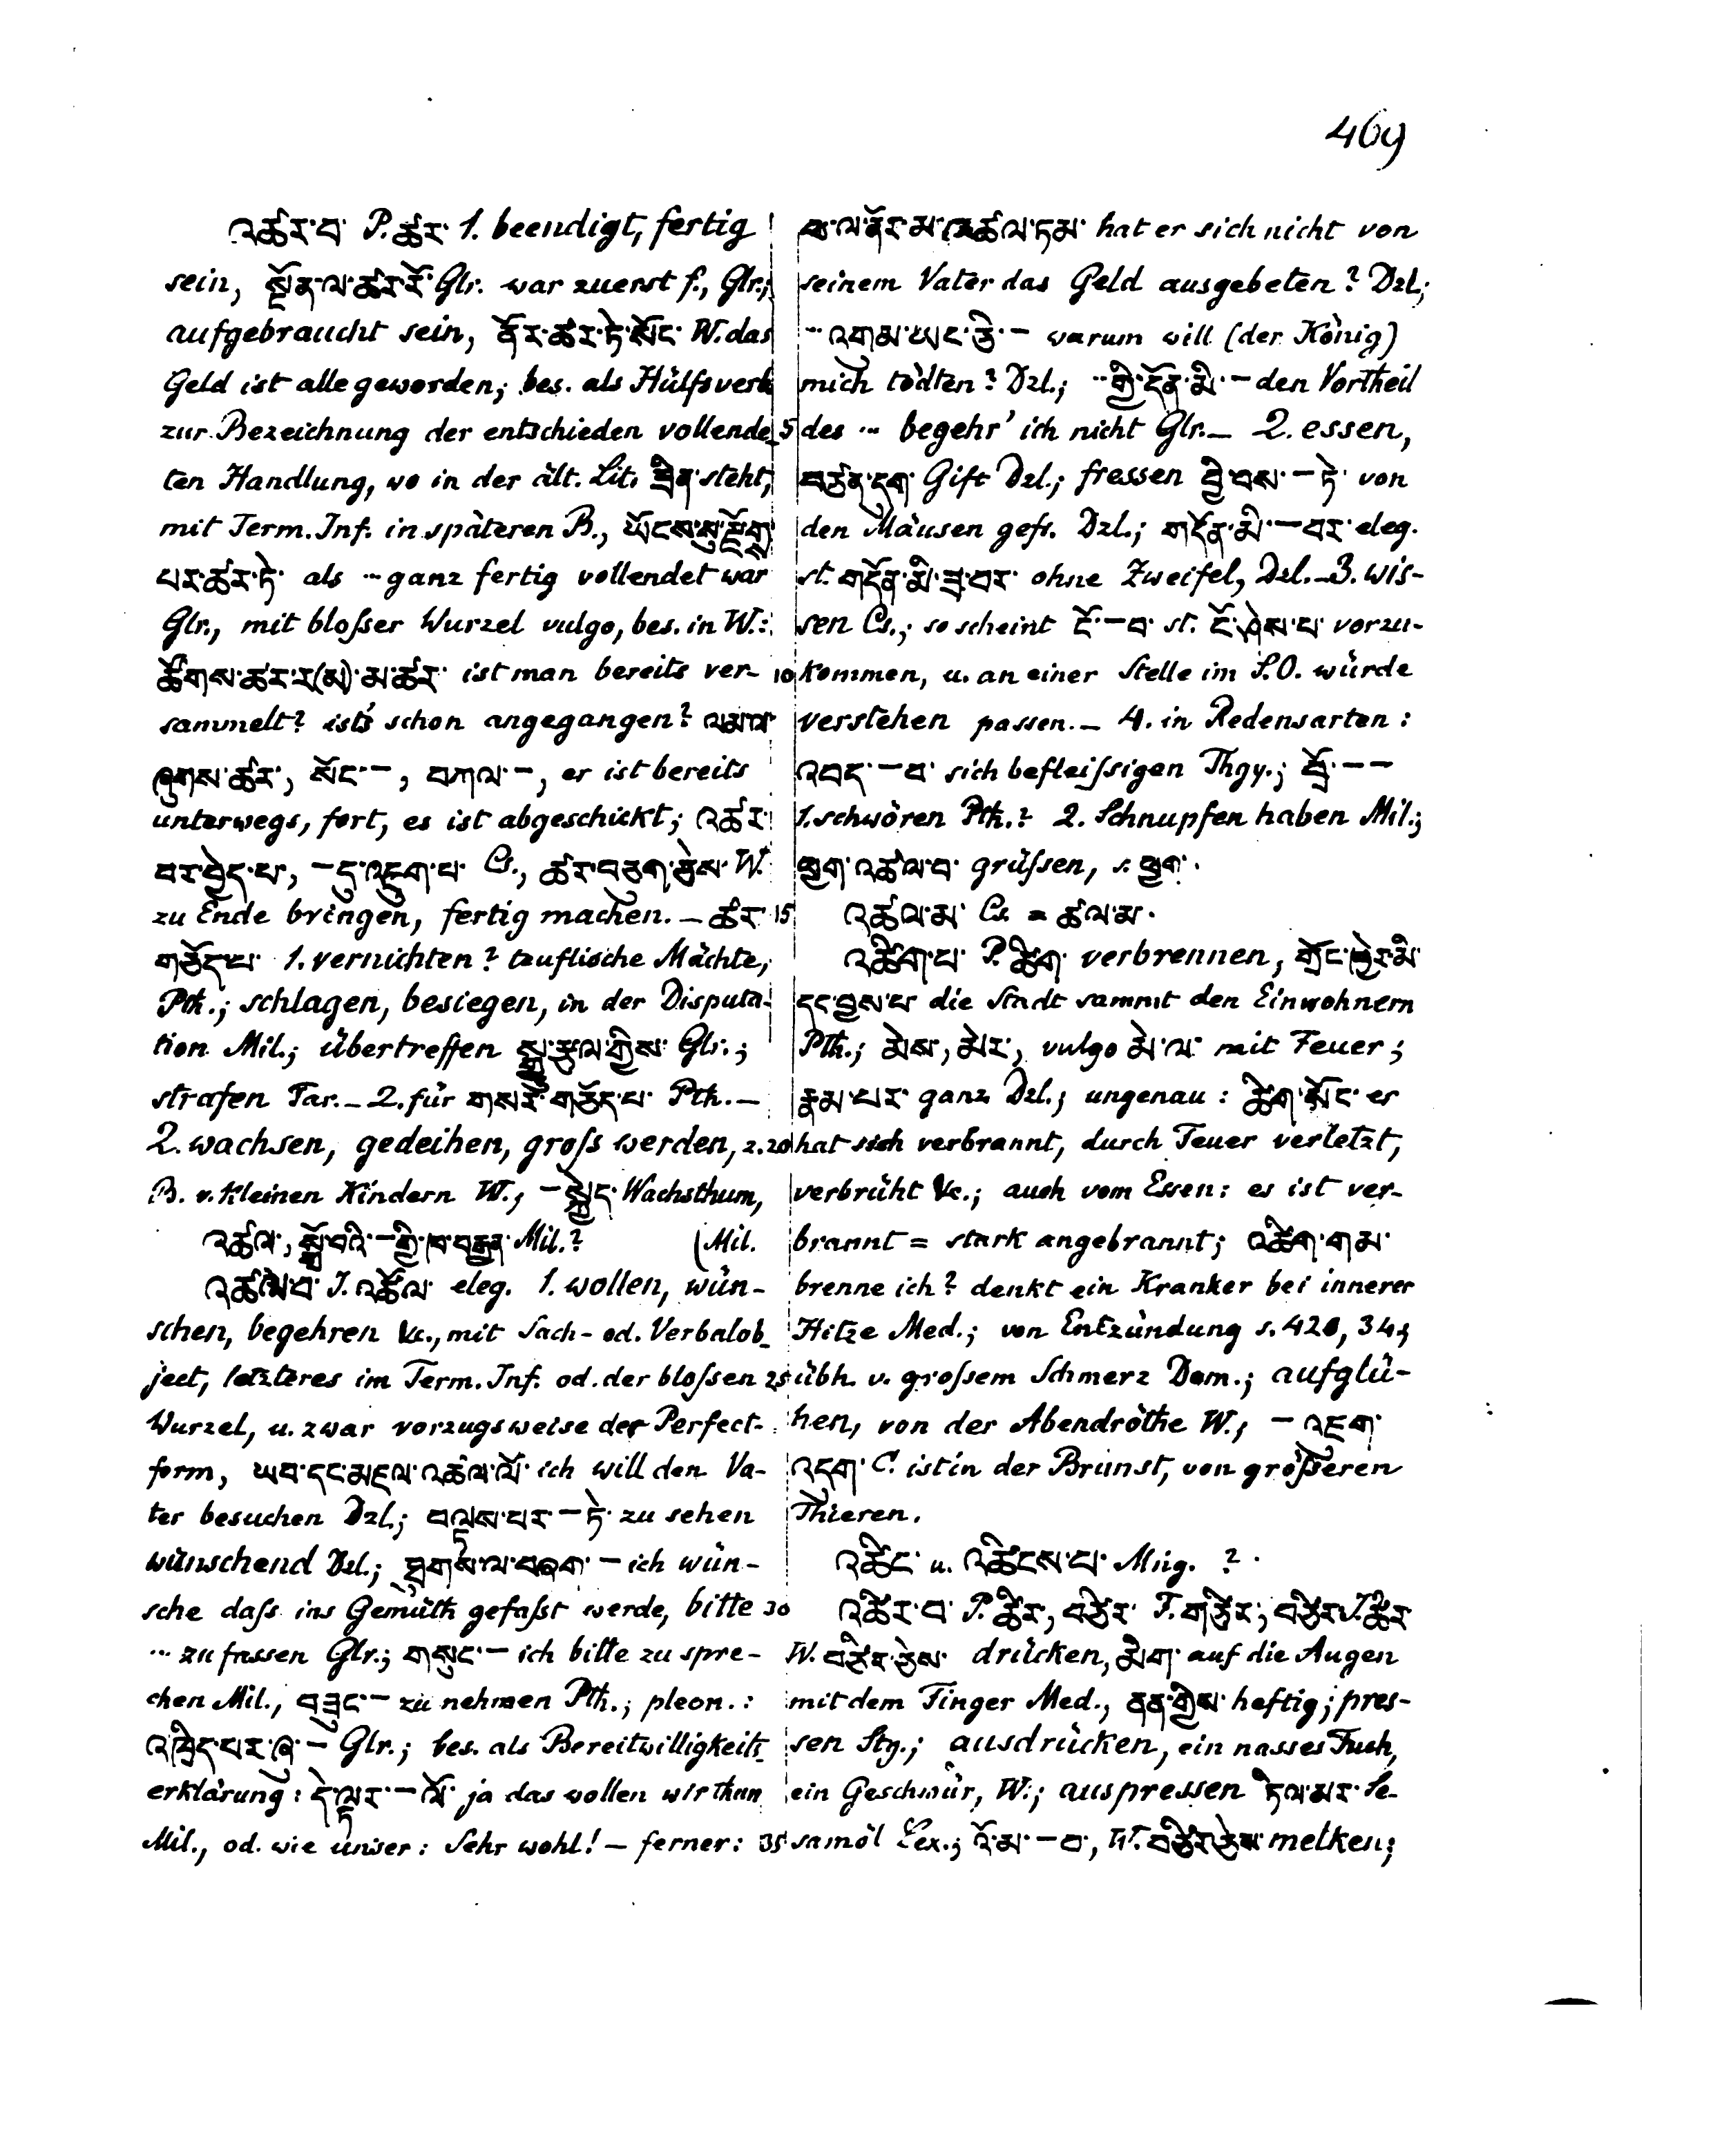 469
འཚར་བ་ P. ཚར་ 1. beendigt, fertig
sein, སྔོན་ལ་ཚར་རོ་ Glr. war zuerst f., Glr.;
aufgebraucht sein, ནོར་ཚར་ཏེ་སོང་ W. das
Geld ist alle geworden; bes. als Hülfsverb
zur Bezeichnung der entschieden vollende-
ten Handlung, wo in der ält. Lit. ཟིན་ steht,
mit Term. Inf. in späteren B., ཡོངས་སུ་རྫོགས་
པར་ཚར་ཏེ་ als ··· ganz fertig vollendet war
Glr., mit bloſser Wurzel vulgo, bes. in W.:
ཚོགས་ཚར་ར(མ)་མ་ཚར་ ist man bereits ver-
sammelt? ist's schon angegangen? ལམ་ལ་
ཞུགས་ཚར་, སོང་ –, བཀལ་ –, er ist bereits
unterwegs, fort, es ist abgeschickt; འཚར་
བར་བྱེད་པ་, – དུ་འཇུག་པ་ Cs., ཚར་བཅུག་ཅེས་ W.
zu Ende bringen, fertig machen. – ཚར་
གཅོད་པ་ 1. vernichten? teuflische Mächte,
Pth.; schlagen, besiegen, in der Disputa-
tion Mil.; übertreffen སྒྱུ་རྩལ་གྱིས་ Glr.;
strafen Tar. – 2. für གསར་གཅོད་པ་ Pth. –
2. wachsen, gedeihen, groſs werden, z.
B. v. kleinen Kindern W.; – སྐྱེད་ Wachsthum,
འཚལ་, Mil.? (Mil.
འཚལ་བ་ I. འཚོལ་ eleg. 1. wollen, wün-
schen, begehren &c., mit Sach- od. Verbalob-
ject, letzteres im Term. Inf. od. der bloſsen
Wurzel, u. zwar vorzugsweise der Perfect-
form, ཡབ་དང་མཇལ་འཚལ་ལོ་ ich will den Va-
ter besuchen Dzl.; བལྟས་པར་ – ཏེ་ zu sehen
wünschend Dzl.; ཐུགས་ལ་བཞག་ – ich wün-
sche daſs ins Gemüth gefaſst werde, bitte
··· zu fassen Glr.; གསུང་ – ich bitte zu spre-
chen Mil., བཟུང་ – zu nehmen Pth.; pleon.:
འཁྲིད་པར་ཞུ་ – Glr.; bes. als Bereitwilligkeits-
erklärung: དེ་ལྟར་ – ལོ་ ja das wollen wir thun
Mil., od. wie unser: Sehr wohl! – ferner:
ཕ་ལ་ནོར་མ་འཚལ་ཏམ་ hat er sich nicht von
seinem Vater das Geld ausgebeten? Dzl.;
··· འགམ་ཡང་ཅི་ – warum will (der König)
mich tödten? Dzl.; ··· གྱི་དོན་མི་ – den Vortheil
5 des ··· begehr' ich nicht Glr. – 2. essen,
བཙན་དུག་ Gift Dzl.; fressen བྱི་བས་ – ཏེ་ von
den Mäusen gefr. Dzl.; གདོན་མི་ – བར་ eleg.
st. གདོན་མི་ཟ་བར་ ohne Zweifel, Dzl. – 3. wis-
sen Cs.; so scheint ངོ་ – བ་ st. ངོ་ཤེས་པ་ vorzu-
10 kommen, u. an einer Stelle im S.O. würde
verstehen passen. – 4. in Redensarten:
འབད་ – བ་ sich befleiſsigen Thgy.; བྲོ་ – –
1. schwören Pth.? 2. Schnupfen haben Mil.;
ཕྱག་འཚལ་བ་ grüſsen, s. ཕྱག་.
15 འཚལ་མ་ Cs. = ཚལ་མ་.
འཚིག་པ་ P. ཚིག་ verbrennen, གྲོང་ཁྱེར་མི་
དང་བྱས་པ་ die Stadt sammt den Einwohnern
Pth.; མེས་, མེར་, vulgo མེ་ལ་ mit Feuer;
རྣམ་པར་ ganz Dzl.; ungenau: ཚིག་སོང་ er
20 hat sich verbrannt, durch Feuer verletzt,
verbrüht &c.; auch vom Essen: es ist ver-
brannt = stark angebrannt; འཚིག་གམ་
brenne ich? denkt ein Kranker bei innerer
Hitze Med.; von Entzündung s. 420, 34;
25 übh. v. groſsem Schmerz Dom.; aufglü-
hen, von der Abendröthe W.; – འཇུག་
འདུག་ C. ist in der Brunst, von gröſseren
Thieren.
འཚིང་ u. འཚིངས་པ་ Mng. ?
30 འཚིར་བ་ P. ཚིར་, བཙིར་ F. གཙིར་, བཙིར་ I. ཚིར་
W. བཙིར་ཅེས་ drücken, མིག་ auf die Augen
mit dem Finger Med., ནན་གྱིས་ heftig; pres-
sen Stg.; ausdrücken, ein nasses Tuch,
ein Geschwür, W.; auspressen ཏིལ་མར་ Se-
35 samöl Lex.; འོ་མ་ – བ་, W. བཙིར་ཅེས་ melken;